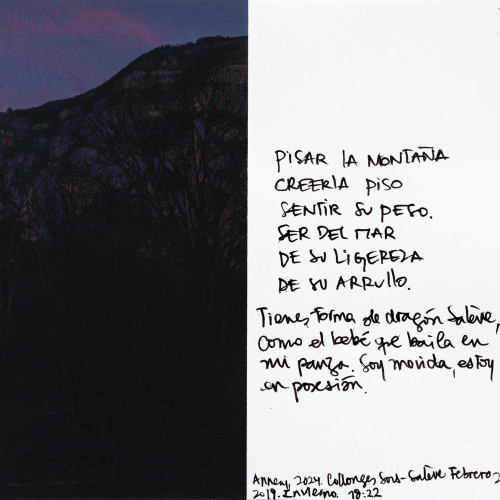 PISAR LA MONTAÑA
CREERLA PISO
SENTIR SU PESO.
SER DEL MAR
DE SU LIGEREZA
DE SU ARRULLO.
Tienes forma de dragón Salève,
como el bebé que baila en
mi panza. Soy movida, estoy
en posesión.
Annecy, 2024. Collonges Sous-Salève Febrero
2019. Invierno. 18:22